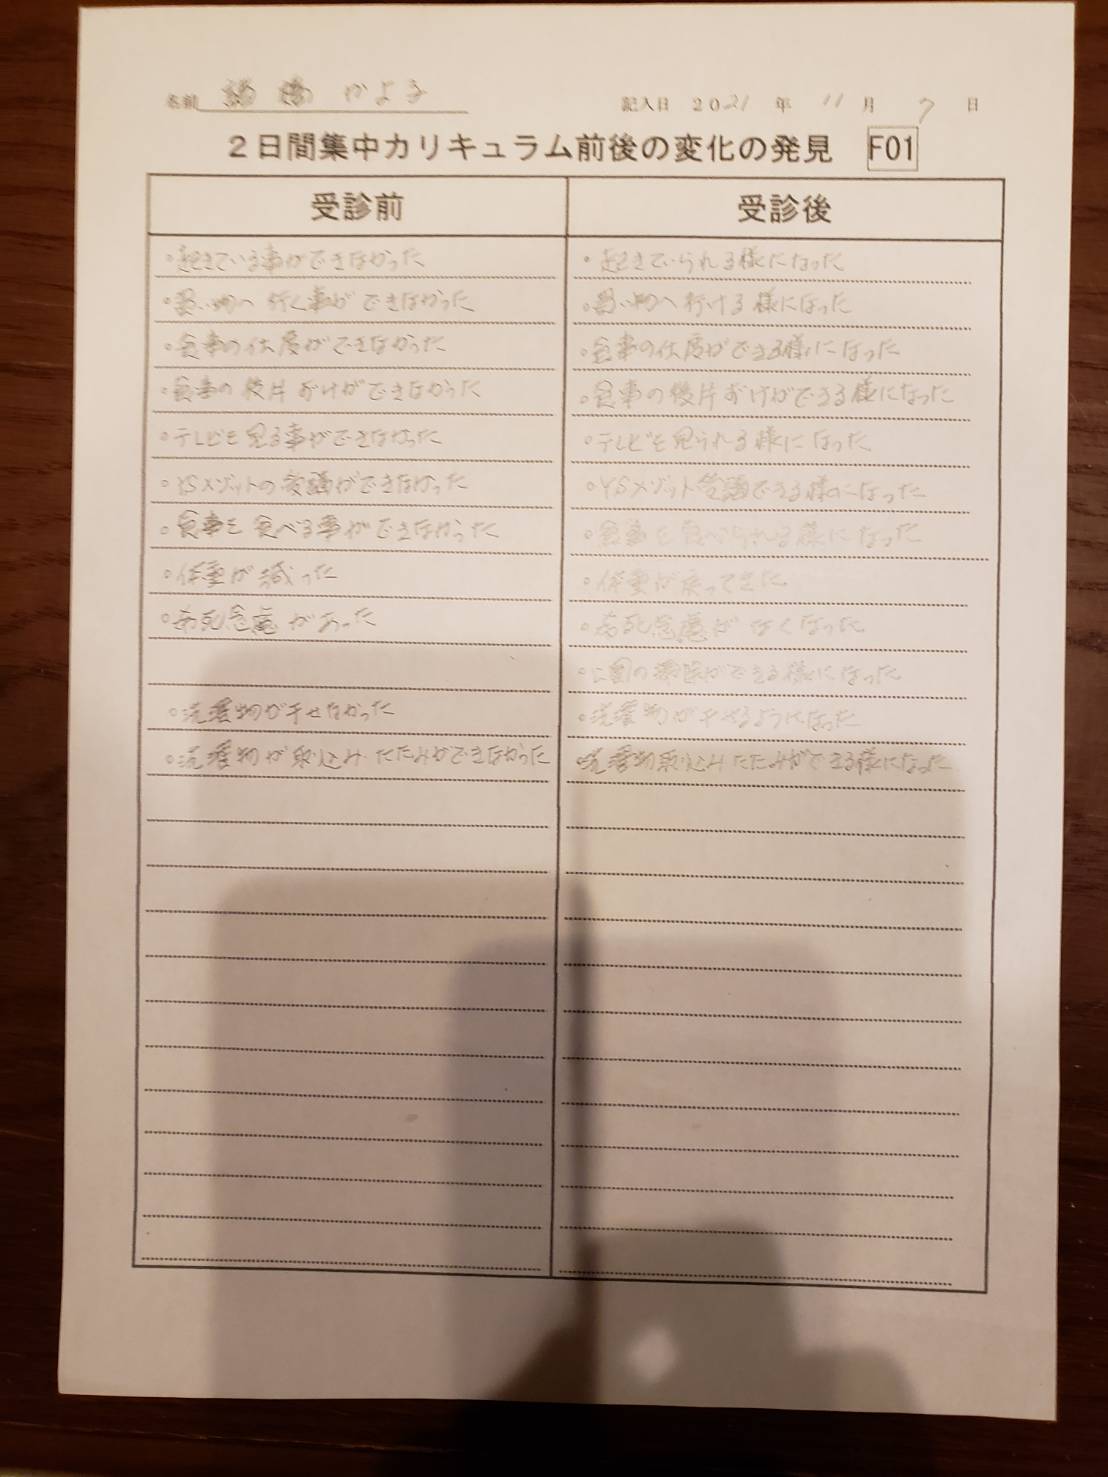 名前 かよ子 記入日 2021 年 11 月 7 日
2日間集中カリキュラム前後の変化の発見 F01
受診前 受診後
○起きている事ができなかった ○起きていられる様になった
○買い物へ行く事ができなかった ○買い物へ行ける様になった
○食事の仕度ができなかった ○食事の仕度ができる様になった
○食事の後片づけができなかった ○食事の後片づけができる様になった
○テレビを見る事ができなかった ○テレビを見られる様になった
○YSメソットの受講ができなかった ○YSメソット受講できる様になった
○食事を食べる事ができなかった ○食事を食べられる様になった
○体重が減った ○体重が戻ってきた
○希死念慮があった ○希死念慮がなくなった
○公園の ができる様になった
○洗濯物が干せなかった ○洗濯物が干せるようになった
○洗濯物が取り込みたたみができなかった ○洗濯物取り込みたたみができる様になった